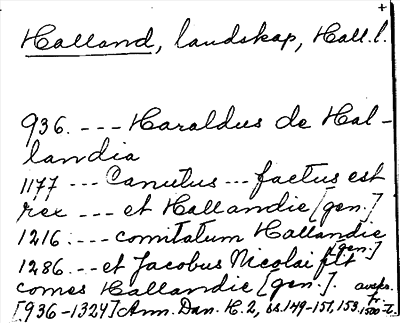 +
Halland, landskap, Hall. l.
936. --- Haraldus de Hal-
landia
1177 --- Canutus --- factus est
rex --- et Hallandie [gen.]
1216: --- comitatum Hallandie
[gen.]
1286. -- et Jacobus Nicolai flt
comes Hallandie [gen.]. avskr.
fr.
[936-1324] Ann. Dan. H. 2, ss. 149-151, 153. 1500-t.